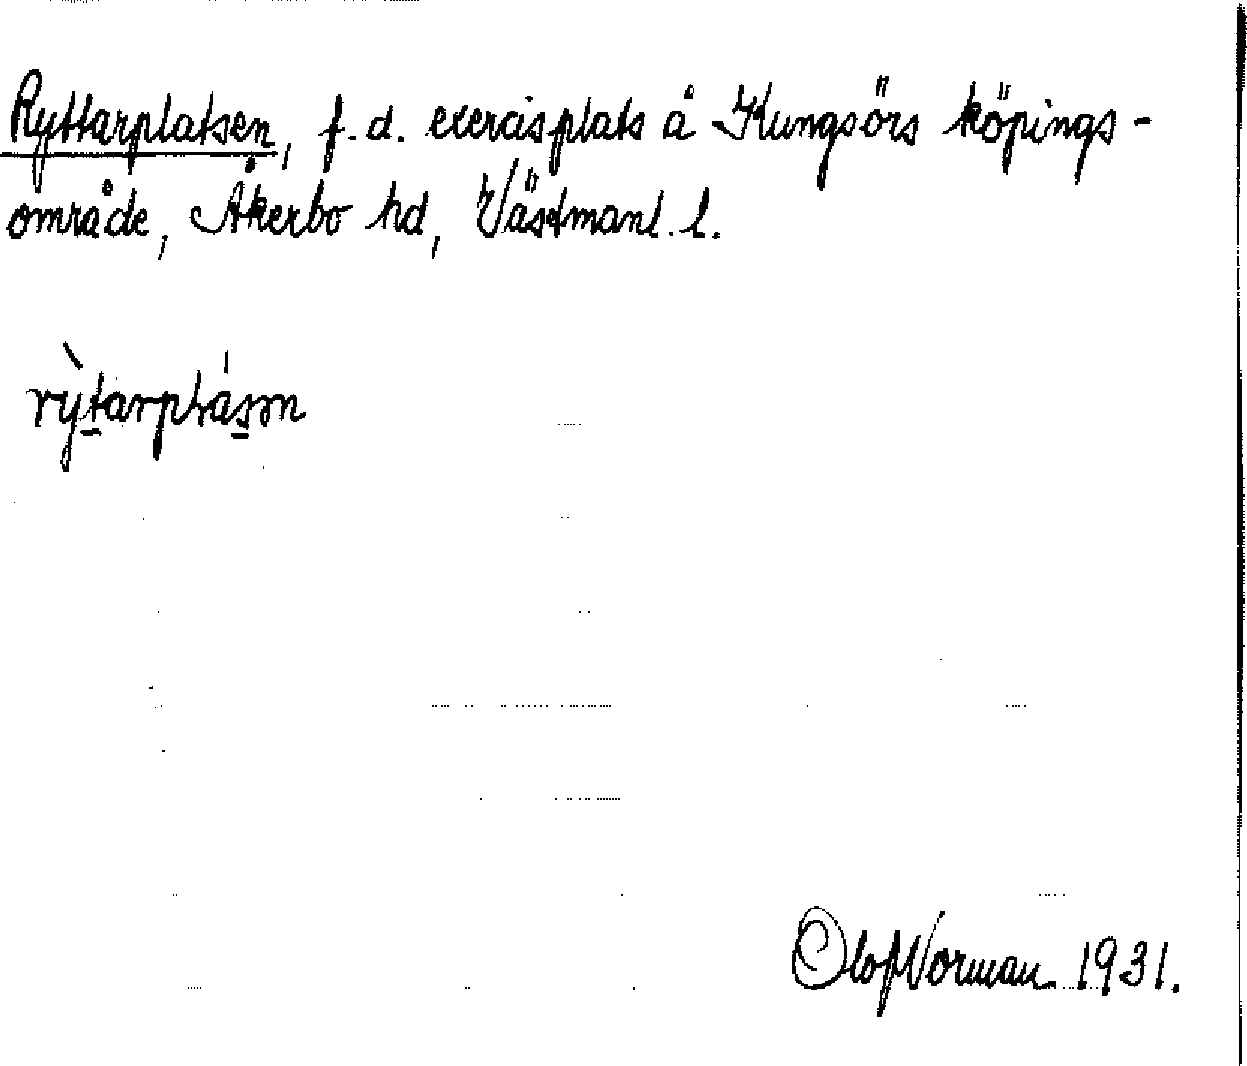 Ryttarplatsen, f.d. exercisplats å Kungsörs köpings-
område, Åkerbo hd, Västmanl. l.
rỳtarplásn
Olof Norman 1931.